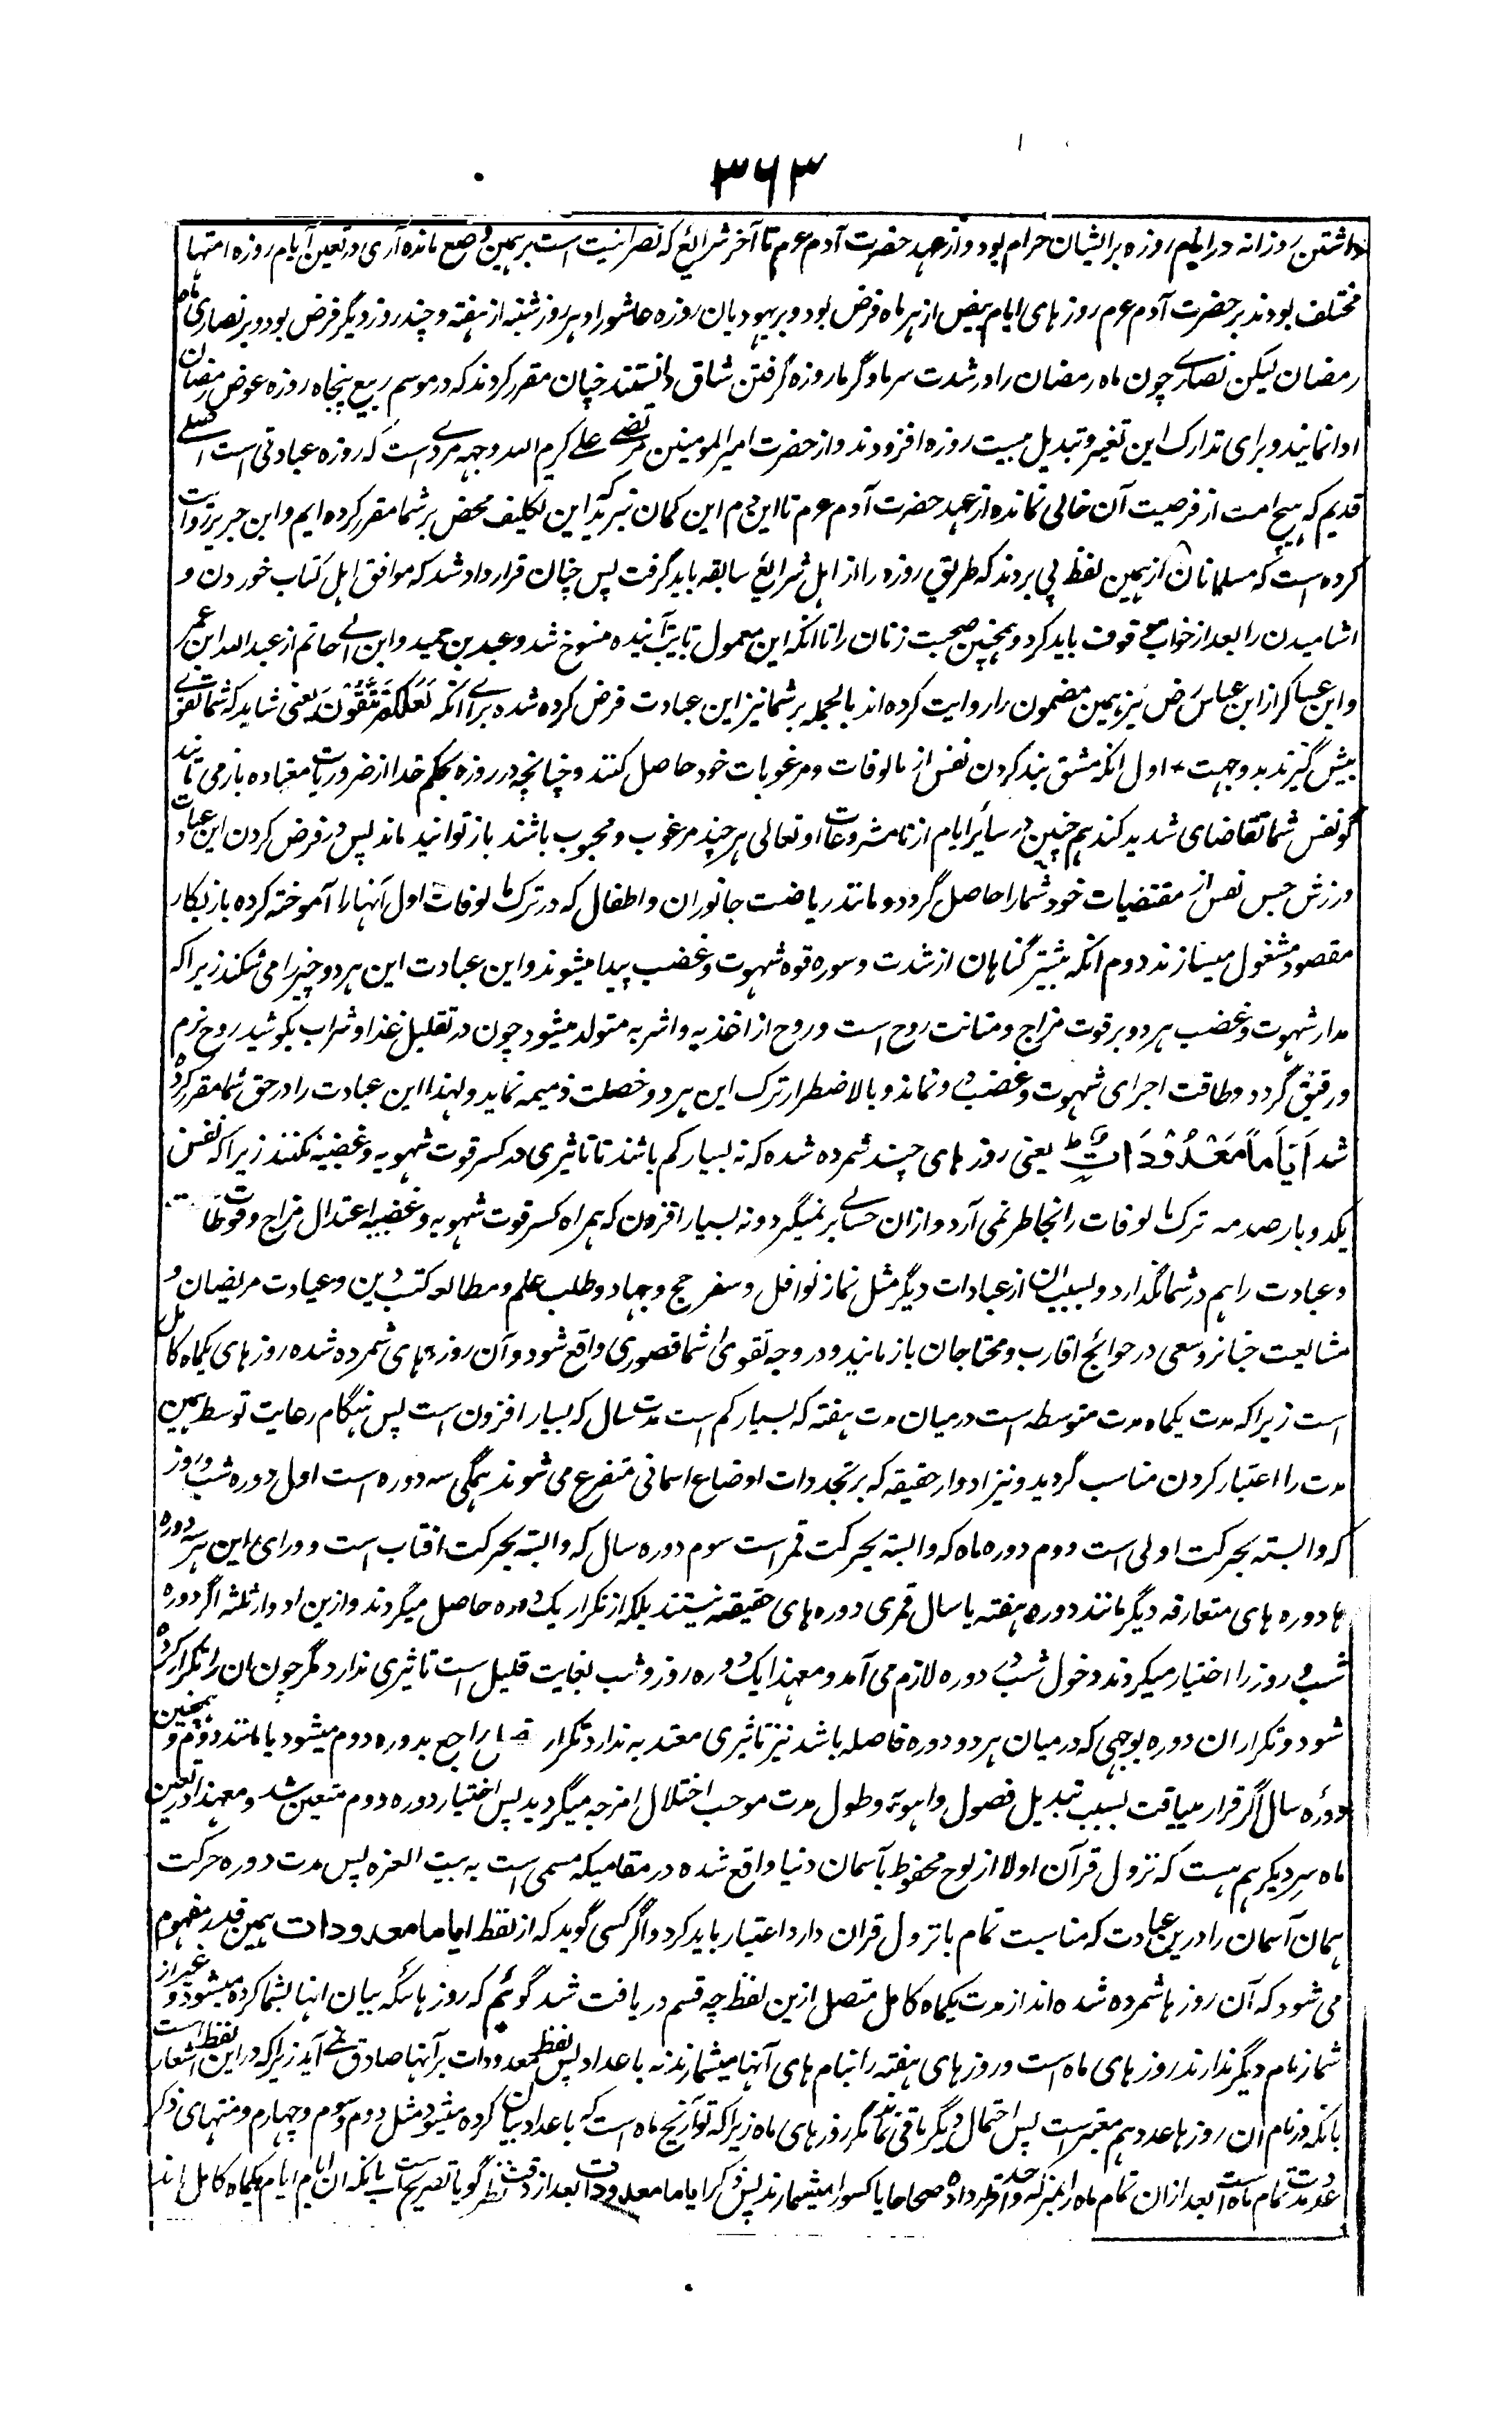 ۳۶۳
داشتن روزانه در ایام روزه بر ایشان حرام بود و از عهد حضرت آدم عم تا آخر شرایع که نصرانیت است بر همین وضع مانده آری در تعین ایام روزه امتها
مختلف بودند بر حضرت آدم عم روزهای ایام بیض از هر ماه فرض بود و بر یهودیان روزه عاشورا و هر روز شنبه از هفته و چند روز دیگر فرض بود و بر نصاری ماه
رمضان لیکن نصارے چون ماه رمضان را در شدت سرما و گرما روزه گرفتن شاق دانستند چنان مقرر کردند که در موسم ربیع پنجاه روزه عوض رمضان
ادا نمایند و برای تدارک این تغیر و تبدیل بیست روزه افزودند و از حضرت امیر المومنین مرتضے علے کرم الله وجهه مروے است که روزه عبادتی است اصلے
قدیم که هیچ امت از فرضیت آن خالی نمانده از عهد حضرت آدم عم تا این دم این گمان نبرید که این تکلیف محض بر شما مقرر کرده ایم و ابن جریر روایت
کرده است که مسلمانان از همین لفظ پی بردند که طریق روزه را از اهل شرایع سابقه باید گرفت پس چنان قرارداد شد که موافق اهل کتاب خوردن و
اشامیدن را بعد از خواب موقوف باید کرد و همچنین صحبت زنان را تا آنکه این معمول تا بآیت آینده منسوخ شد و عبد بن حمید و ابن ابی حاتم از عبد الله ابن عمر
و ابن عساکر از ابن عباس رض نیز همین مضمون را روایت کرده اند بالجمله بر شما نیز این عبادت فرض کرده شده برای آنکه لَعَلَّكُمْ تَتَّقُوْنَ یعنی شاید که شما تقوے
پیش گیرند بدو جهت + اول آنکه مشق بند کردن نفس از مالوفات و مرغوبات خود حاصل کنند و چنانچه در روزه بحکم خدا از ضروریات معتاده باز می مانید
گو نفس شما تقاضای شدید کند همچنین در سائر ایام از نامشروعات او تعالی هر چند مرغوب و محبوب باشند باز توانید ماند پس در فرض کردن این عبادت
ورزش حبس نفس از مقتضیات خود شما را حاصل گردد و مانند ریاضت جانوران و اطفال که در ترک مالوفات اول آنها را آموخته کرده باز بکار
مقصود مشغول میسازند دوم آنکه بیشتر گناهان از شدت و سوره قوه شهوت و غضب پیدا میشوند و این عبادت این هر دو چیز را می شکند زیرا که
مدار شهوت و غضب هر دو بر قوت مزاج و متانت روح است و روح از اغذیه و اشربه متولد میشود چون در تقلیل غذا و شراب بکوشید روح نرم
و رقیق گردد و طاقت اجرای شهوت و غضب در و نماند و بالاضطرار ترک این هر دو خصلت ذمیمه نماید و لهذا این عبادت را در حق شما مقرر کرده
شد اَيَّامًا مَعْدُوْدَاتٍ یعنی روزهای چند شمرده شده که نه بسیار کم باشند تا تاثیری در کسر قوت شهویه و غضبیه نکنند زیرا که نفس
یکدو بار صدمه ترک مالوفات را بخاطر نمی آرد و ازان حسابے برنمیگیرد و نه بسیار افزون که همراه کسر قوت شهویه و غضبیه اعتدال مزاج و قوت
و عبادت را هم در شما نگذارد و بسبب آن از عبادات دیگر مثل نماز نوافل و سفر حج و جهاد و طلب علم و مطالعه کتب دین و عیادت مریضان و
مشایعت جنائز و سعی در حوائج اقارب و محتاجان باز مانید و در وجه تقوی شما قصوری واقع شود و آن روزهای شمرده شده روزهای یکماه کامل
است زیرا که مدت یکماه مدت متوسطه است درمیان مدت هفته که بسیار کم است مدت سال که بسیار افزون است پس هنگام رعایت توسط همین
مدت را اعتبار کردن مناسب گردید و نیز ادوار حقیقه که بر تجددات اوضاع اسمانی متفرع می شوند همگی سه دوره است اول دوره شب و روز
که وابسته بحرکت اولی است دوم دوره ماه که وابسته بحرکت قمر است سوم دوره سال که وابسته بحرکت آفتاب است و ورای این هر سه دوره
ها دوره های متعارفه دیگر مانند دوره هفته یا سال قمری دوره های حقیقه نیستند بلکه از تکرار یک دوره حاصل میگردند و ازین ادوار ثلثه اگر دوره
شب و روز را اختیار میکردند دخول شب در دوره لازم می آمد و معهذا یک دوره روز و شب بغایت قلیل است تاثیری ندارد مگر چون آن را تکرار کرده
شود و تکرار ان دوره بوجهی که درمیان هر دو دوره فاصله باشد نیز تاثیری معتد به ندارد تکرار راجع بدوره دوم میشود یا مانند دوم و همچنین
دوره سال اگر قرار مییافت بسبب تبدیل فصول و اهویه و طول مدت موجب اختلال امزجه میگردید پس اختیار دوره دوم متعین شد و معهذا در تعین
ماه سر دیگر هم هست که نزول قرآن اولا از لوح محفوظ بآسمان دنیا واقع شده در مقامیکه مسمی است به بیت العزه پس مدت دوره حرکت
همان آسمان را درین عبادت که مناسبت تمام با نزول قران دارد اعتبار باید کرد و اگر کسی گوید که از لفظ ایاما معدودات همین قدر مفهوم
می شود که آن روزها شمرده شده اند از مدت یکماه کامل متصل ازین لفظ چه قسم دریافت شد گوئیم که روزهائیکه بیان انها بشما کرده میشود و غیر از
شمار نام دیگر ندارند روزهای ماه است و روزهای هفته را بنام های آنها میشمارند نه باعداد پس لفظ معدودات بر آنها صادق نمے آید زیرا که در این لفظ اشعار است
بانکه در نام آن روزها عدد هم معتبر است پس احتمال دیگر باقی نماند مگر روزهای ماه زیرا که تواریخ ماه است که باعداد بیان کرده میشود مثل دوم و سوم و چهارم و منتهای ذکر
عدد مدت تمام ماه است بعد ازان تمام ماه را بمنزله واحد قرار داده صحاحا یا کسورا میشمارند پس ذکر ایاما معدودات بعد از دقت نظر گویا تصریح است بانکه ان ایام ایام یکماه کامل اند